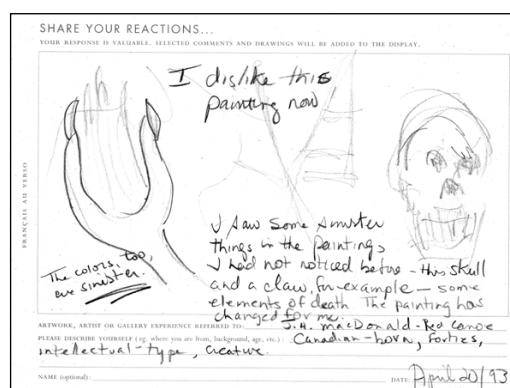 SHARE YOUR REACTIONS...
YOUR RESPONSE IS VALUABLE. SELECTED COMMENTS AND DRAWINGS WILL BE ADDED TO THE DISPLAY.
I dislike this
painting now
FRANÇAIS AU VERSO
I saw some sinister
things in the paintings
I had not noticed before - this skull
and a claw, for example — some
elements of death The painting has
changed for me.
The colors, too,
are sinister.
ARTWORK, ARTIST OR GALLERY EXPERIENCE REFERRED TO: J.H. MacDonald - Red Canoe
PLEASE DESCRIBE YOURSELF (eg. where you are from, background, age, etc.): Canadian-born, forties,
intellectual-type, creature.
NAME (optional):
DATE: April 20/93